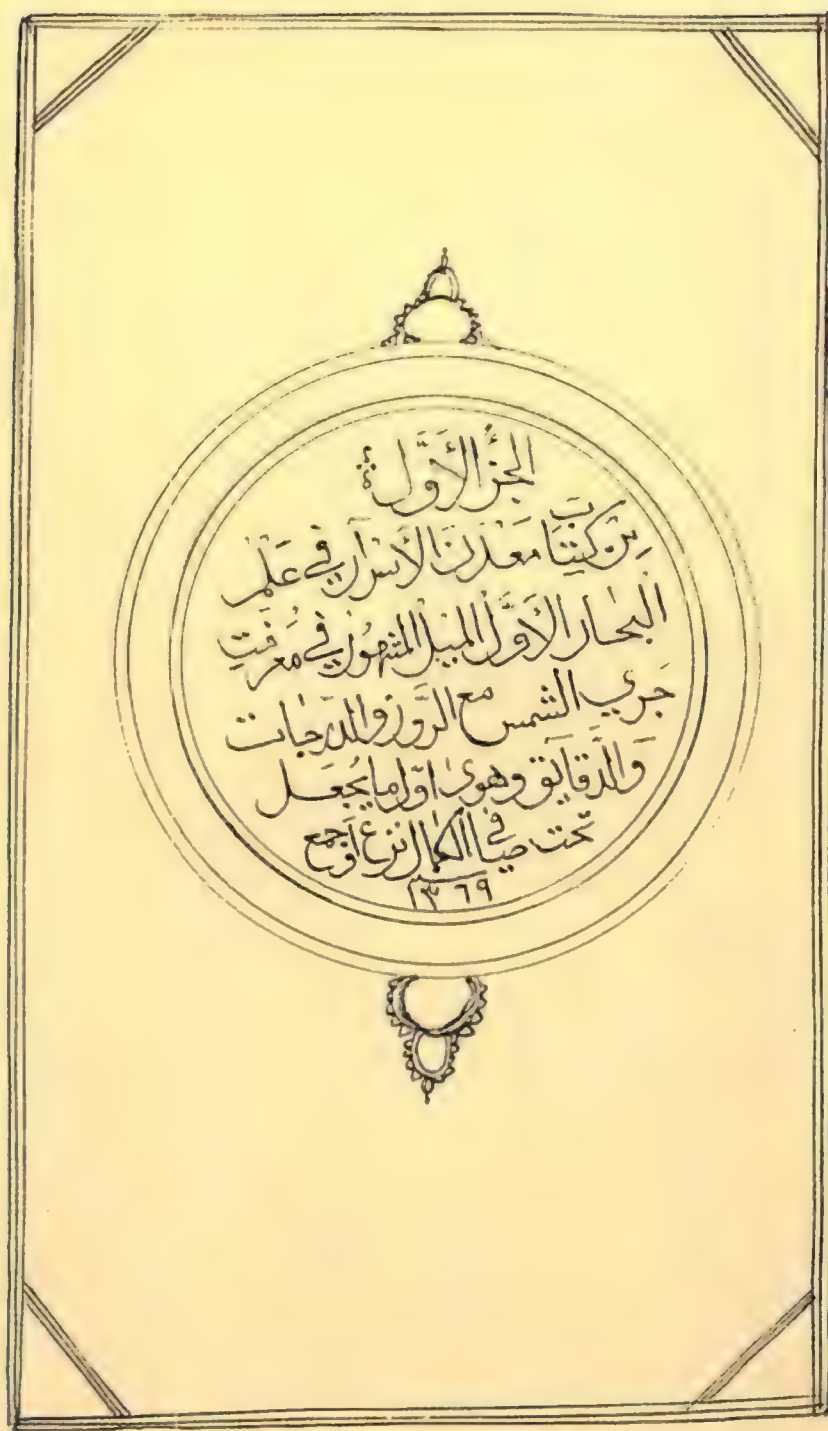 الجزُ الأَوَّل
مِن كِتاب مَعْدَن الأَسْرَار في عَلْم
البحار الأَوَّل الميل المشهور في مَعْرفتِ
جَري الشمس مع الرُّوز والدَرجات
وَالدَّقايَق وهوى اوّل ما يُجعَل
تحت صافي الكمال نزع أوجمع
١٣٦٩